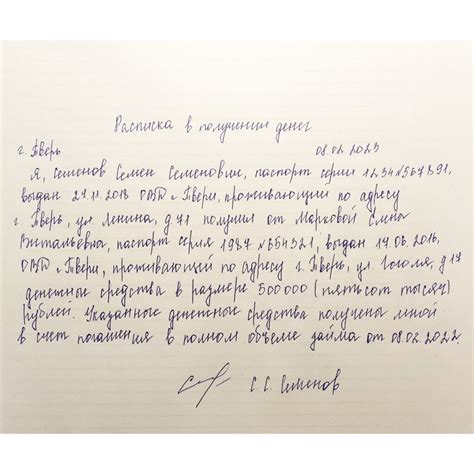 Расписка в получении денег
г. Тверь 08.02.2023
Я, Семенов Семен Семенович, паспорт серии 1234 №567891,
выдан 27.11.2018 ОВД г. Твери, проживающий по адресу
г. Тверь, ул. Ленина, д 71 получил от Марковой Елены
Витальевна, паспорт серия 1987 №654321, выдан 17.06.2016,
ОВД г. Твери, проживающий по адресу г. Тверь, ул. Гоголя, д 17
денежные средства в размере 500000 (пятьсот тысяч)
рублей. Указанные денежные средства получены мной
в счет погашения в полном объеме займа от 08.02.2022.
С. С. Семенов